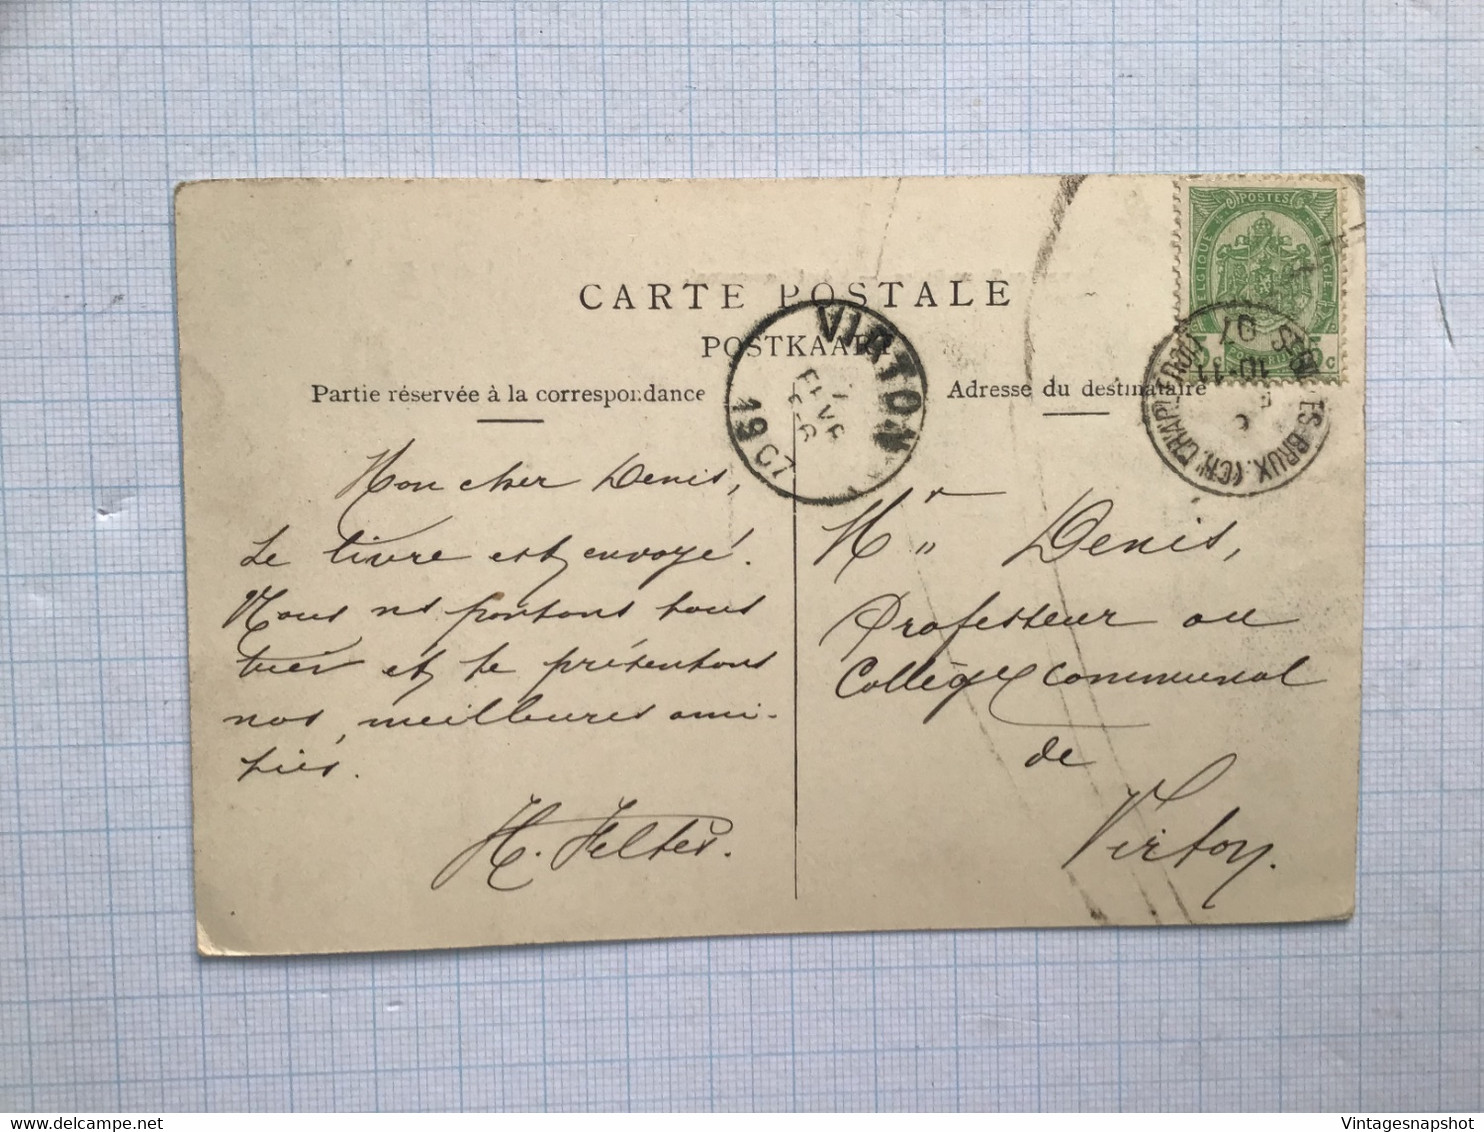 CARTE POSTALE
POSTKAART
Partie réservée à la correspondance
Adresse du destinataire
POSTES
BELGIQUE
BELGIË
VIRTON
FEVR
1907
10-11
07
Mon cher Denis,
Le livre est envoyé.
Nous ns portons tous
bien et te présentons
nos meilleures ami-
tiés.
H. Feltes.
Mr Denis,
Professeur au
Collège communal
de
Virton.
delcampe.net
Vintagesnapshot